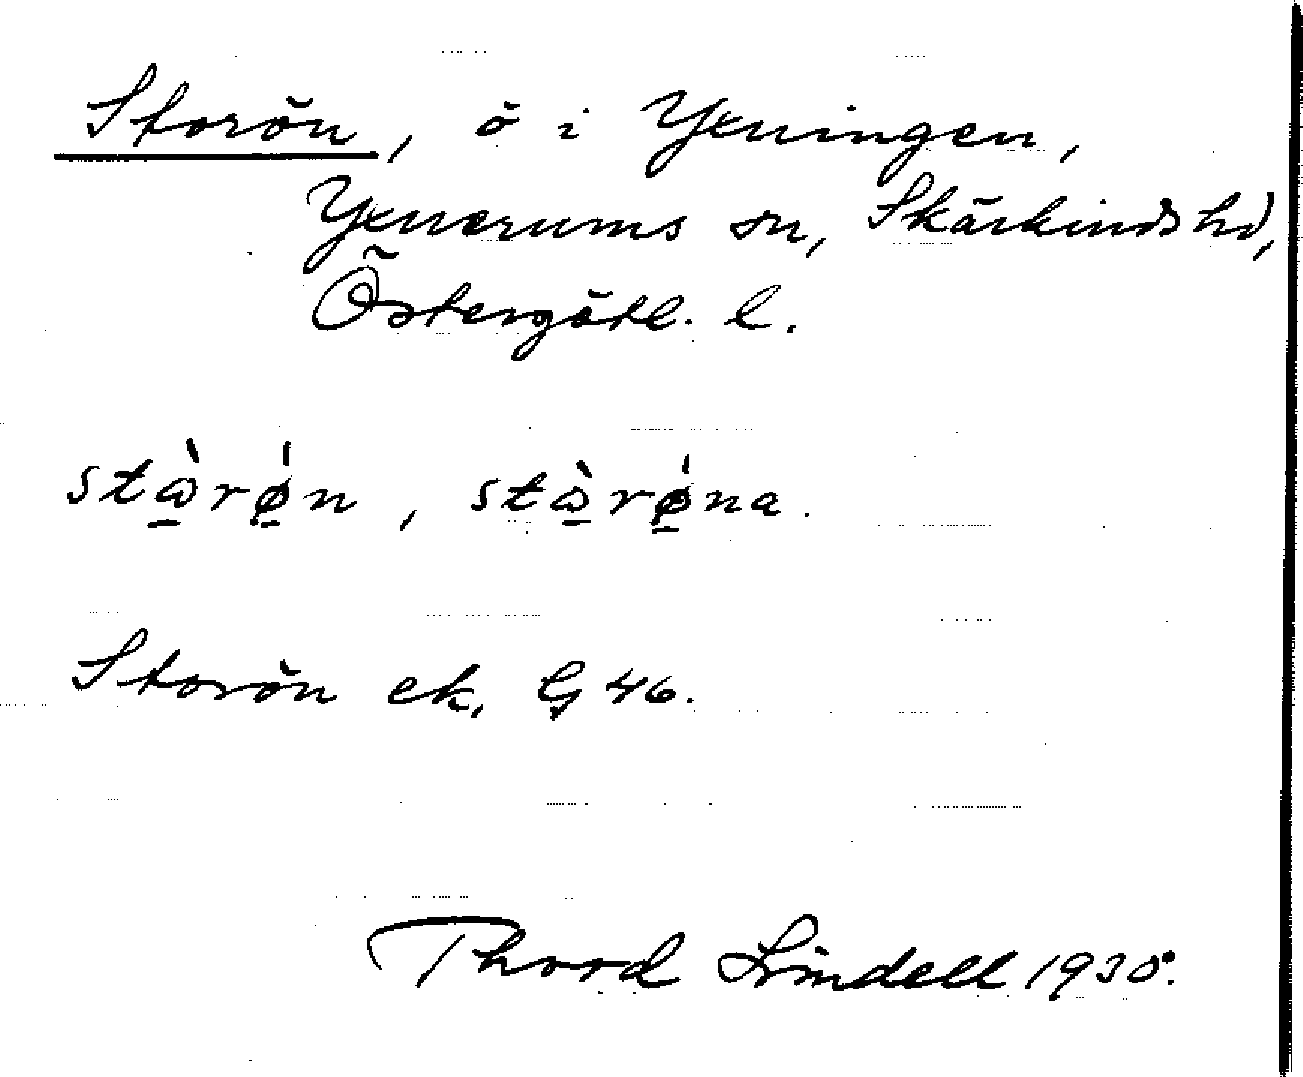 Storön, ö i Yxningen,
Yxnerums sn, Skärkinds hd,
Östergötl. l.
stὼ̲rǿ̲n, stὼ̲rǿ̲na.
Storön ek. G 46.
Thord Lindell 1930.